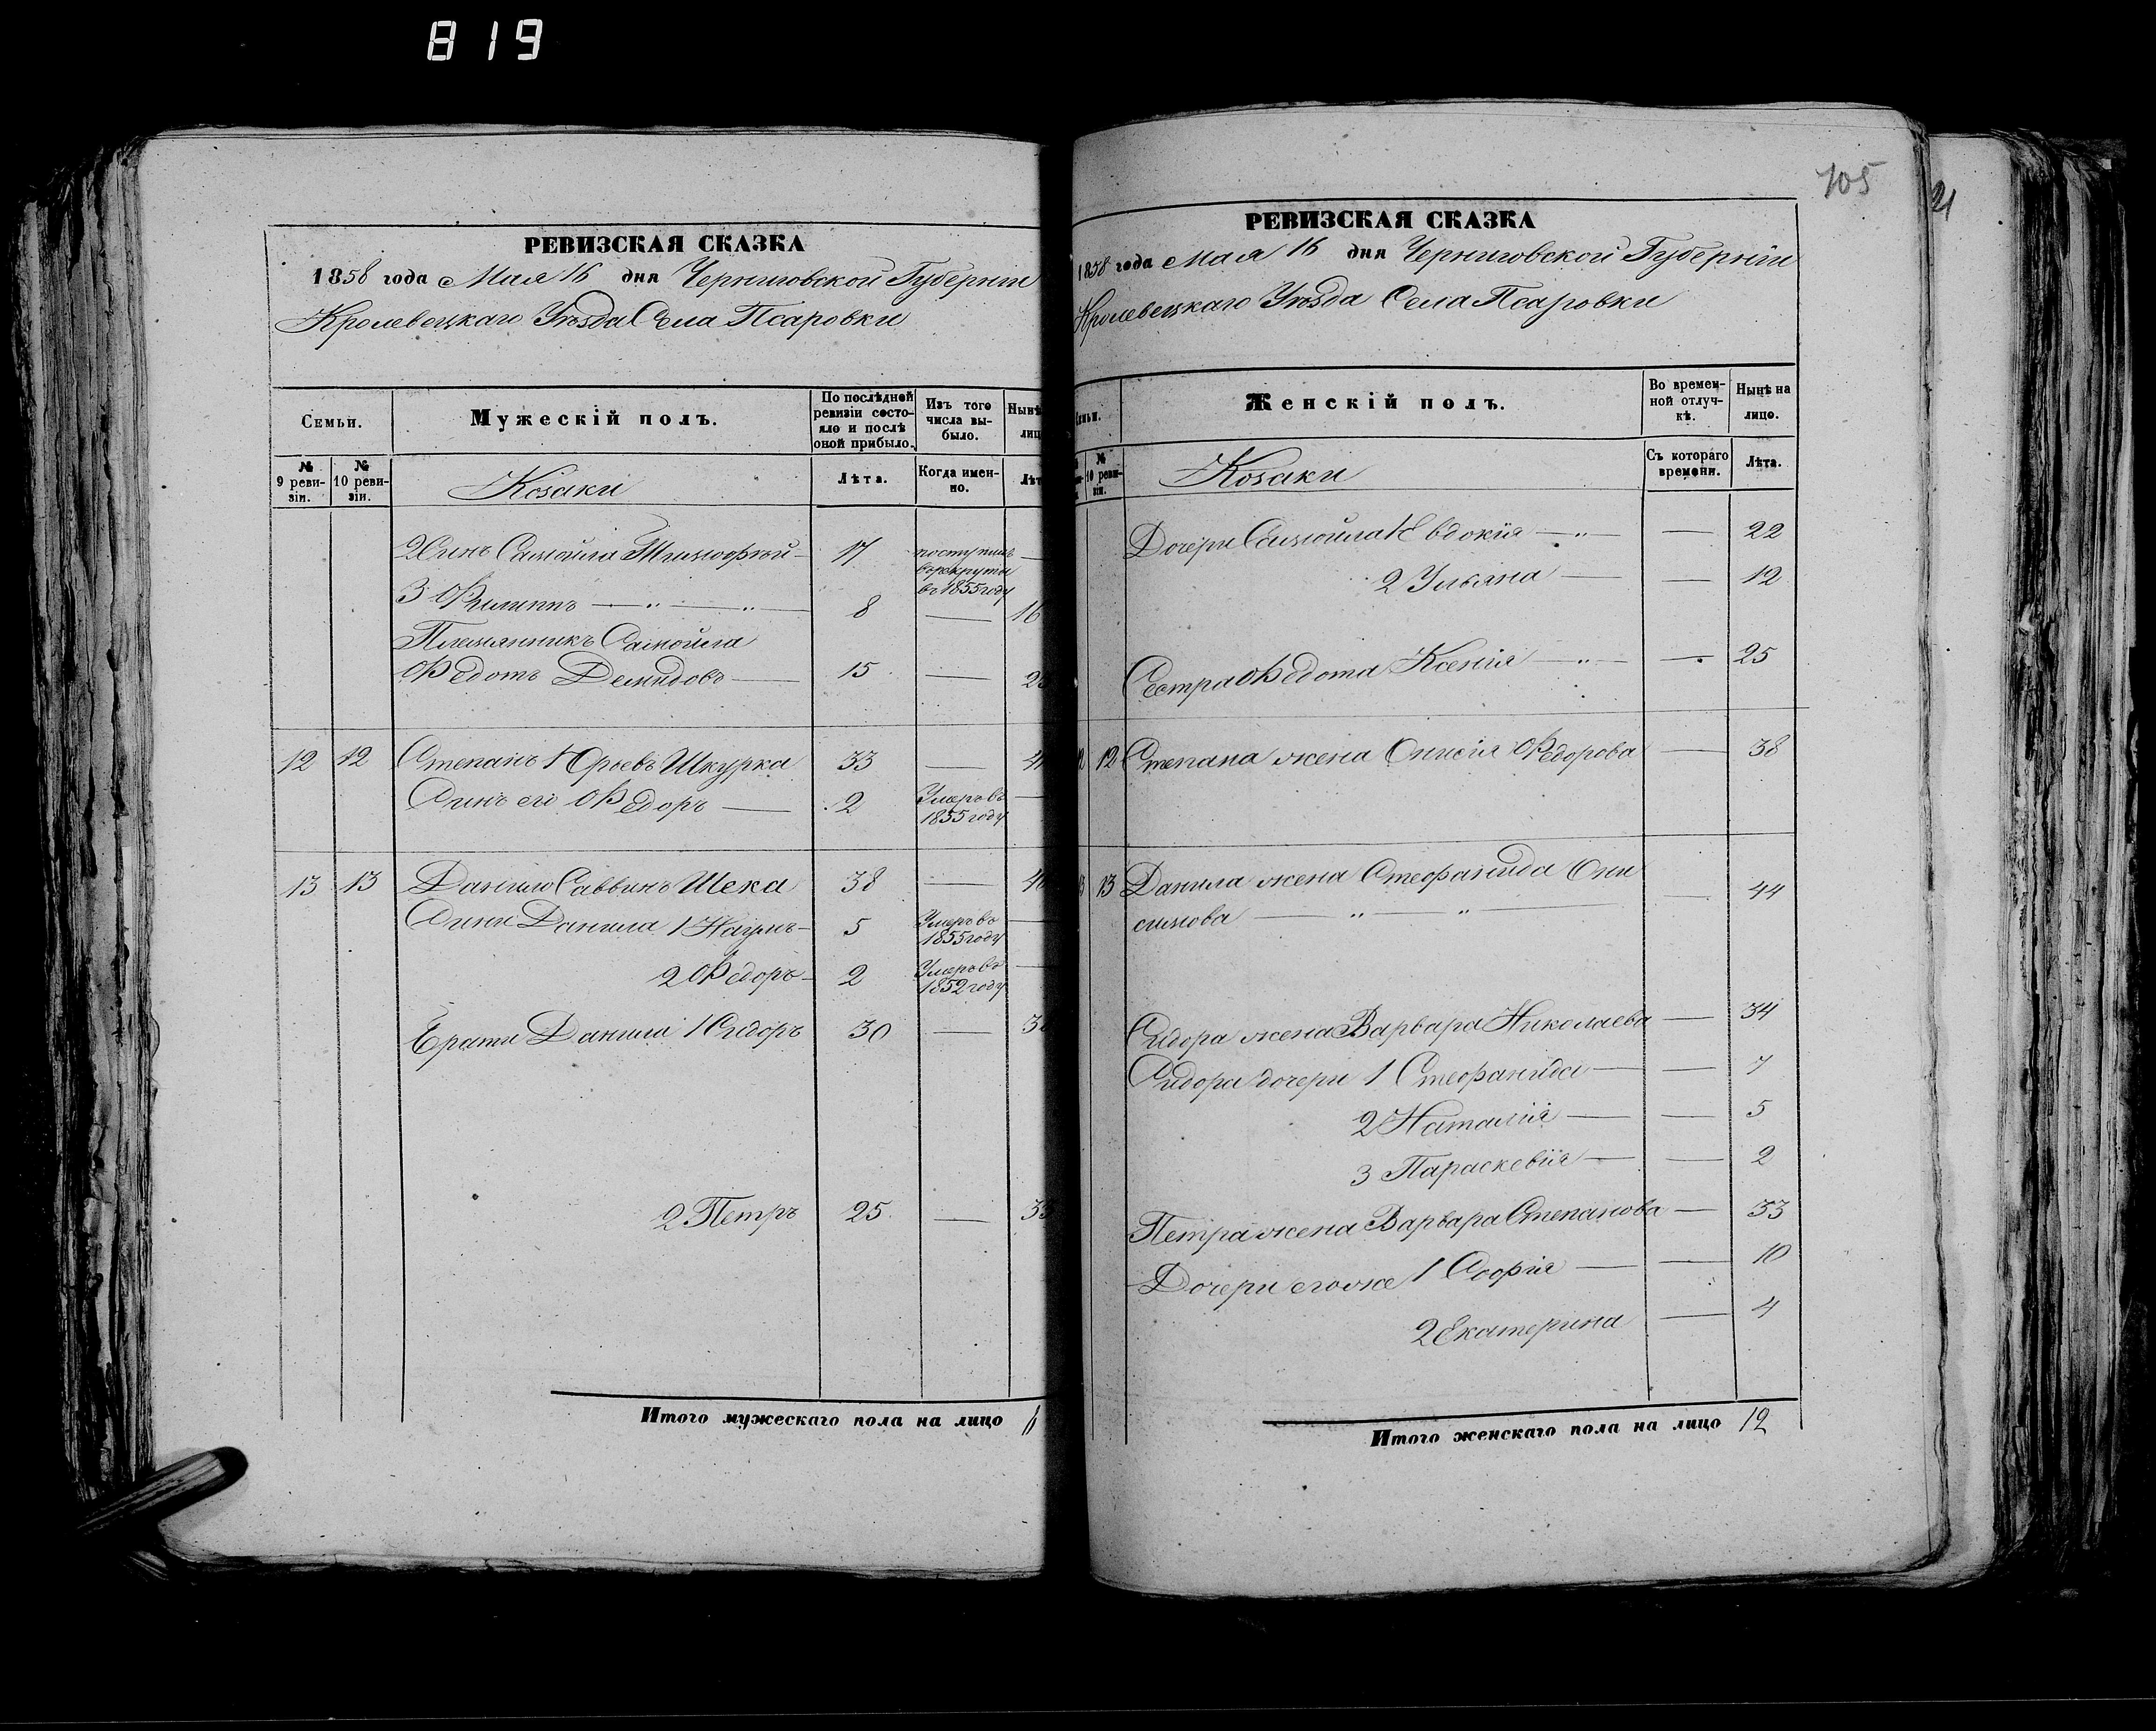 819
РЕВИЗСКАЯ СКАЗКА
1858 года Мая 16 дня Черниговской Губерніи
Кролевецкаго Уѣзда Села Псаровки
Семьи.
Мужескій полъ.
По послѣдней ревизіи состояло и послѣ оной прибыло.
Изъ того числа выбыло.
Нынѣ
лиц
№ 9 ревизіи.
№ 10 ревизіи.
Козаки
Лѣта.
Когда именно.
Лѣт
2 Синъ Самойла Тимофѣй 17 поступилъ
въ рекруты
въ 1855 году
3 Филиппъ — „ — „ — 8 — 16
Племянникъ Самойла
Федотъ Демидовъ — 15 — 2
12 12 Степанъ Юрьевъ Шкурка 33 — 4
Синъ его Федоръ — 2 Умеръ въ
1855 году
13 13 Данило Саввинъ Шека 38 — 4
Сини Данила 1 Наумъ 5 Умеръ въ
1855 году
2 Федоръ 2 Умеръ въ
1852 году
Брати Данила 1 Сидоръ 30 — 3
2 Петръ 25 — 3
Итого мужескаго пола на лицо 6
105
21
РЕВИЗСКАЯ СКАЗКА
1858 года Мая 16 дня Черниговской Губерніи
Кролевецкаго Уѣзда Села Псаровки
Женскій полъ.
Во временной отлучкѣ.
Нынѣ на лицо.
№ 10 ревизіи.
Козаки
Съ котораго времени.
Лѣта.
Дочери Самойла 1 Евдокія — „ — — 22
2 Ульяна — — 12
Сестра Федота Ксенія — „ — — 25
12 Степана жена Онисія Федорова — 38
13 Данила жена Стефанида Они
симова — „ — „ — — 44
Сидора жена Варвара Николаева — 34
Сидора дочери 1 Стефанида — — 7
2 Наталія — — 5
3 Параскевія — — 2
Петра жена Варвара Степанова — 33
Дочери его же 1 Софія — — 10
2 Екатерина — 4
Итого женскаго пола на лицо 12